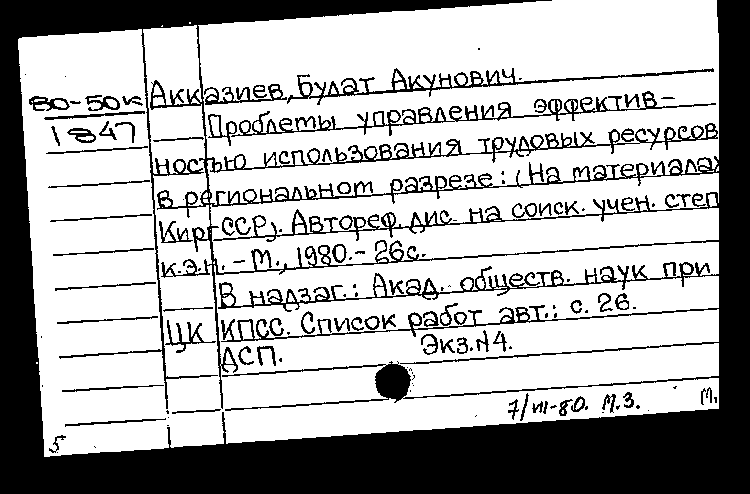 80-50к
1847
Акказиев, Булат Акунович.
Проблемы управления эффектив-
ностью использования трудовых ресурсов
в региональном разрезе: (На материалах
Кирг ССР). Автореф. дис. на соиск. учен. степ
к.э.н. - М., 1980. - 26с.
В надзаг.: Акад. обществ. наук при
ЦК КПСС. Список работ авт.: с. 26.
ДСП. Экз.N4.
7/VII-80. М.З. М.
5